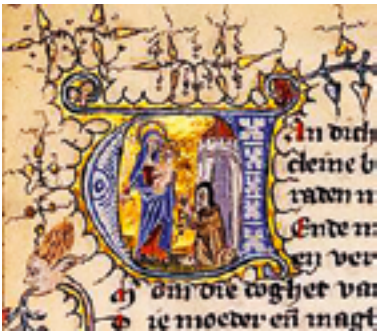 An dich
cleine b
raden m
Ende m
en ver
om die doghet van
ie moeder en̄ magt